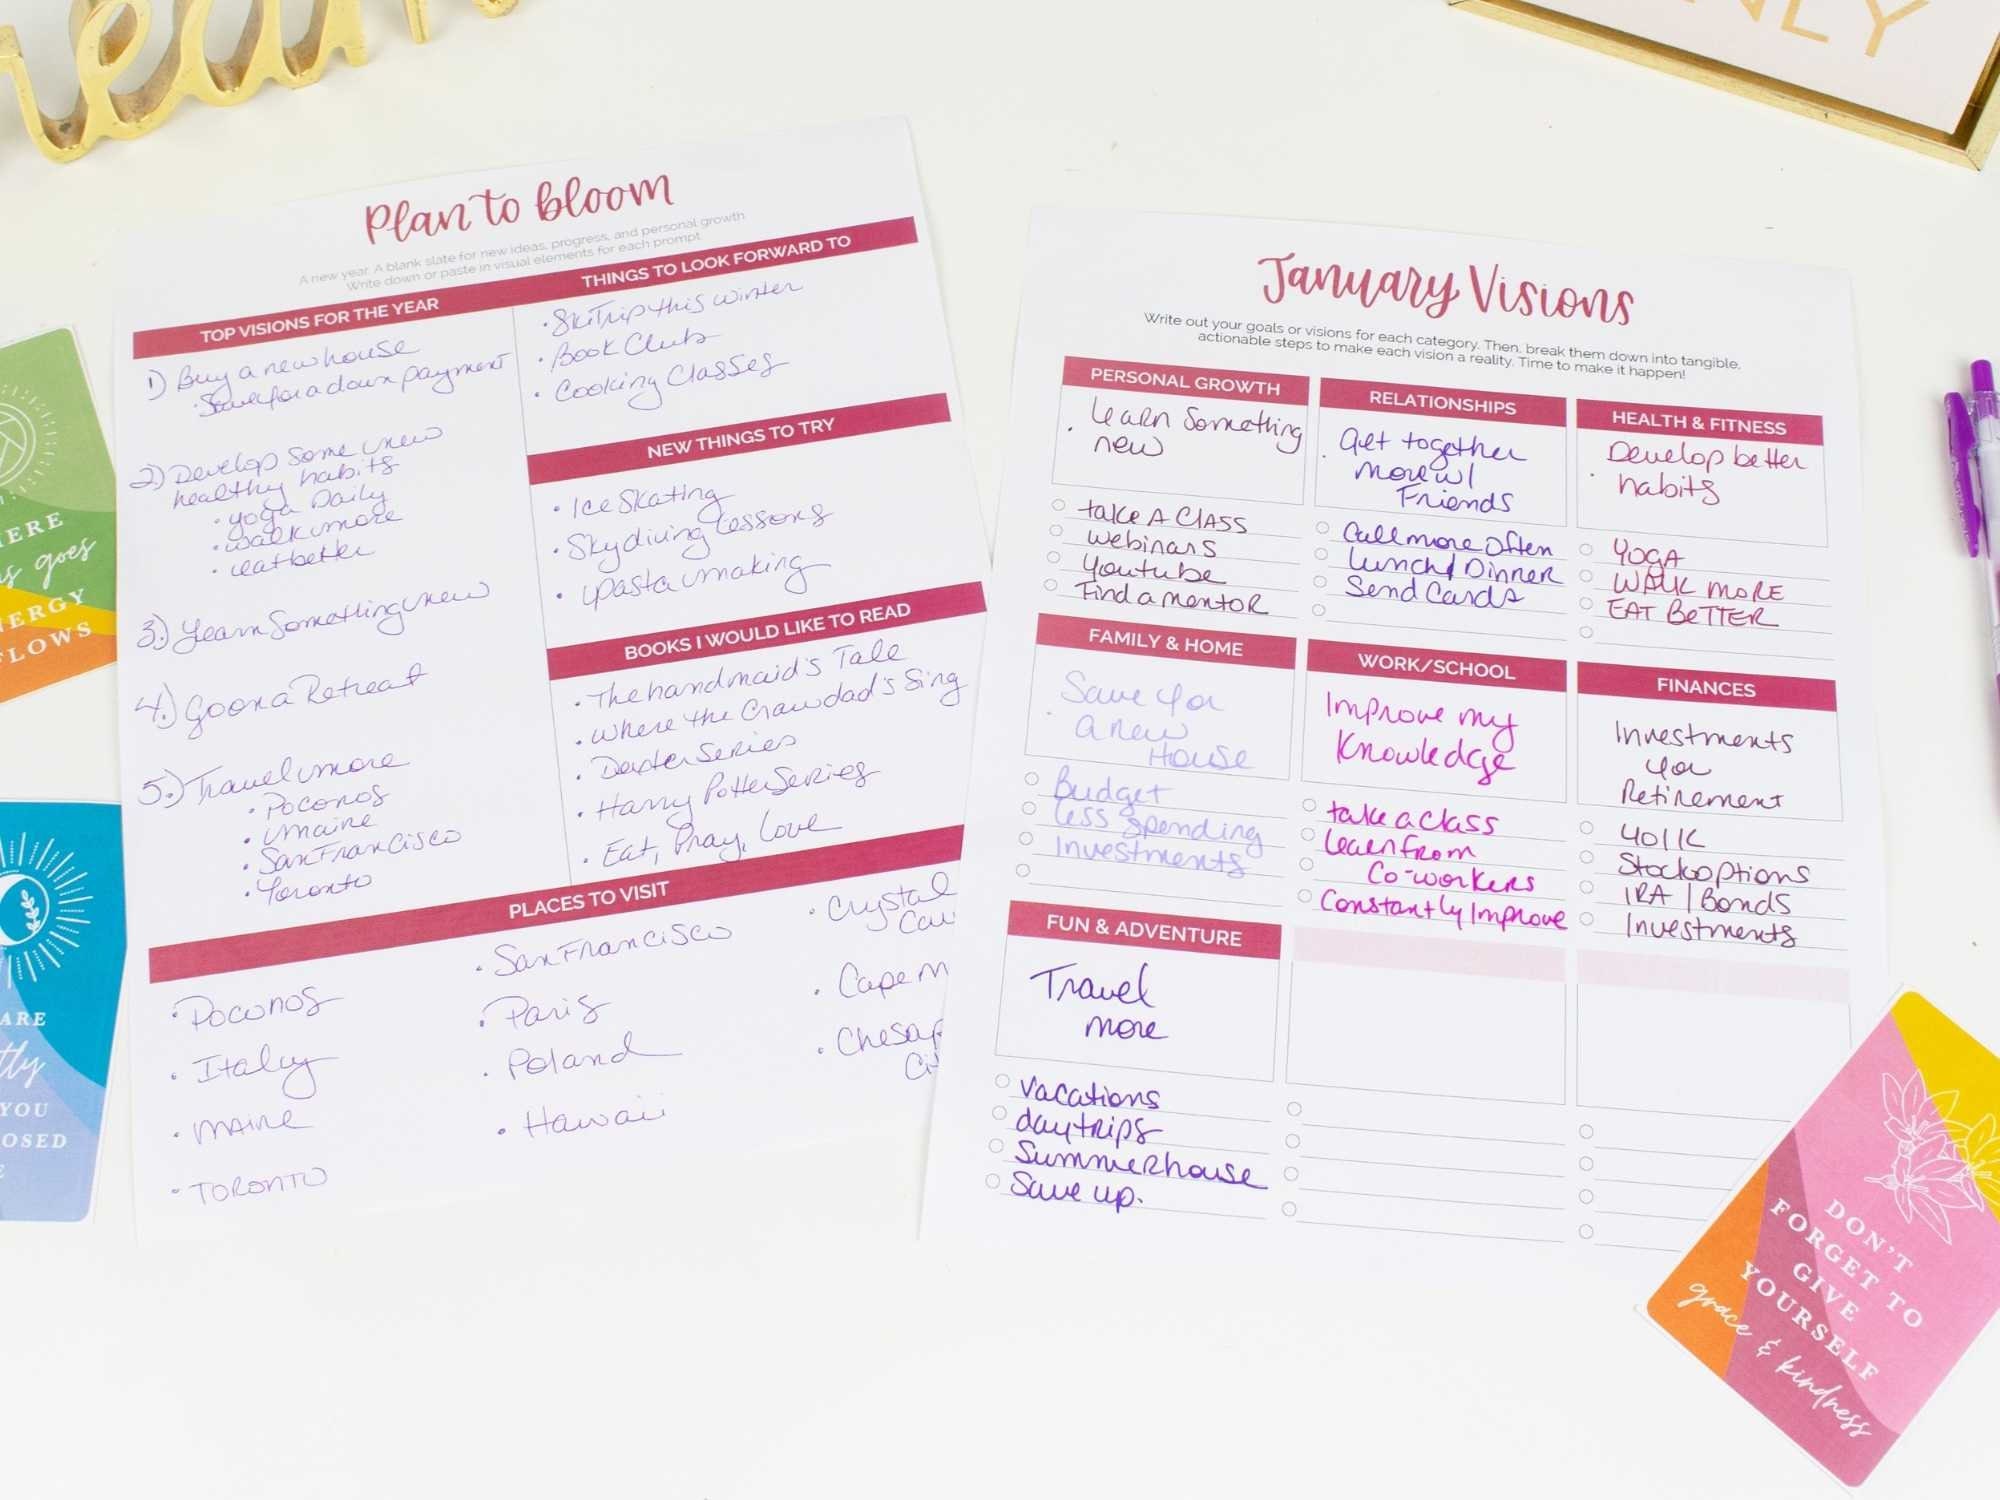 Plan to bloom
A new year. A blank slate for new ideas, progress, and personal growth.
Write down or paste in visual elements for each prompt.
TOP VISIONS FOR THE YEAR
1) Buy a new house
• Save for a down payment
2) Develop some new
healthy habits
• Yoga Daily
• walk more
• eat better
3.) Learn Something new
4.) Go on a Retreat
5.) Travel more
• Poconos
• Maine
• San Francisco
• Toronto
THINGS TO LOOK FORWARD TO
• Ski Trip this winter
• Book Club
• Cooking Classes
NEW THINGS TO TRY
• Ice Skating
• Skydiving Lessons
• pasta making
BOOKS I WOULD LIKE TO READ
• The handmaid's Tale
• Where the Crawdad's Sing
• Dexter Series
• Harry Potter Series
• Eat, Pray, Love
PLACES TO VISIT
• Poconos
• Italy
• MAINE
• TORONTO
• San Francisco
• Paris
• Poland
• Hawaii
• Crystal
• Cape M
January Visions
Write out your goals or visions for each category. Then, break them down into tangible,
actionable steps to make each vision a reality. Time to make it happen!
PERSONAL GROWTH
• Learn Something
new
take A CLASS
webinars
Youtube
Find a mentoR
RELATIONSHIPS
• Get together
more w/
Friends
Call more Often
Lunch/Dinner
Send Cards
HEALTH & FITNESS
• Develop better
habits
YOGA
WALK MORE
EAT BETTER
FAMILY & HOME
• Save for
a new
House
Budget
less spending
Investments
WORK/SCHOOL
Improve my
Knowledge
take a class
learn from
Co-workers
Constantly Improve
FINANCES
Investments
for
Retirement
401K
Stock options
IRA / Bonds
Investments
FUN & ADVENTURE
Travel
more
Vacations
day trips
Summerhouse
Save up.
goes
FLOWS
ARE
YOU
DON'T
FORGET TO
GIVE
YOURSELF
grace & kindness